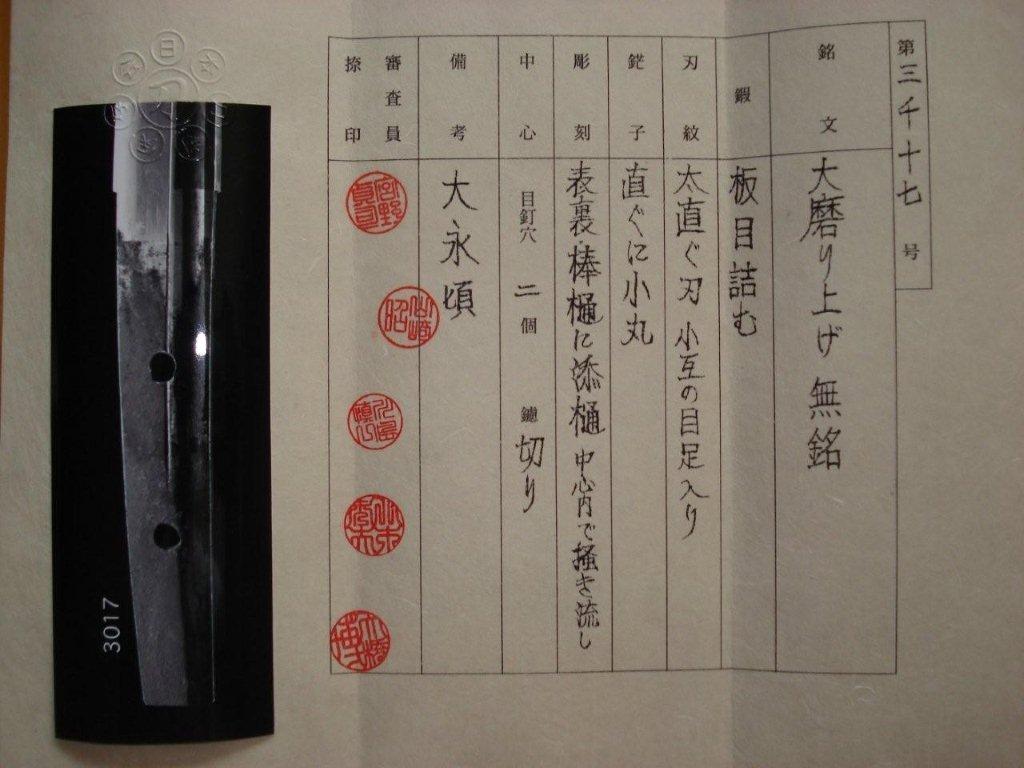 第三千十七号
銘文
大磨り上げ無銘
鍛
板目詰む
刃紋
太直ぐ刃 小互の目足入り
鋩子
直ぐに小丸
彫刻
表裏棒樋に添樋 中心内で掻き流し
中心
目釘穴 二個 鑢 切り
備考
大永頃
審査員
捺印
3017